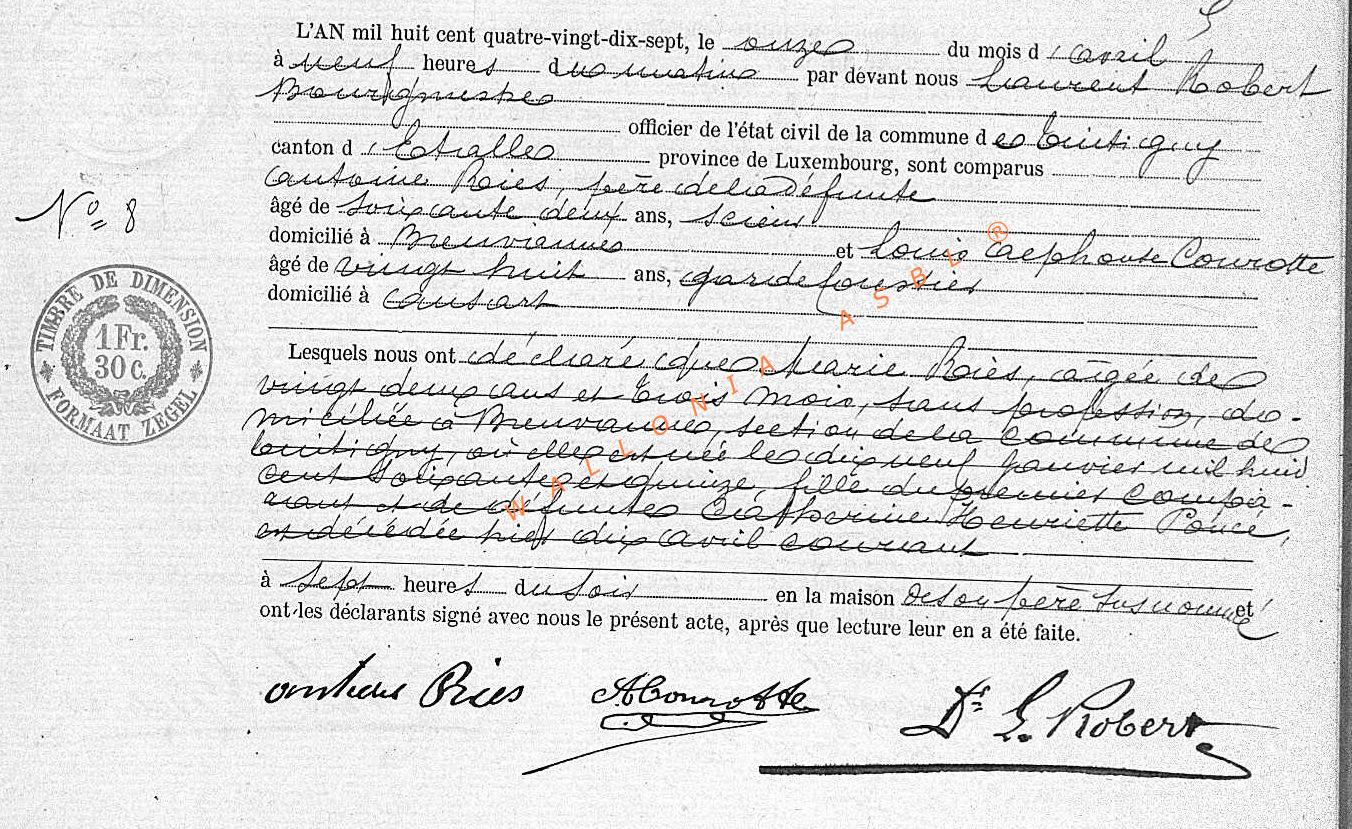 L'AN mil huit cent quatre-vingt-dix-sept, le onze du mois d'avril
à neuf heures du matin par devant nous Laurent Robert
Bourgmestre
officier de l'état civil de la commune de Tintigny
canton d'Etalle province de Luxembourg, sont comparus
Antoine Roiès, père de la défunte
âgé de soixante deux ans, scieur
domicilié à Breuvannes et Louis Alphonse Courotte
âgé de vingt huit ans, garde forestier
domicilié à Ansart
N° 8
TIMBRE DE DIMENSION
1 Fr.
30 C.
FORMAAT ZEGEL
Lesquels nous ont déclaré que Marie Roiès, âgée de
vingt deux ans et trois mois, sans profession, do-
miciliée à Breuvannes, section de la commune de
Tintigny, où elle est née le dix neuf janvier mil huit
cent soixante et quinze, fille du premier compa-
rant et de défunte Catherine Henriette Poncé,
est décédée hier dix avril courant
à sept heures du soir en la maison de son père susnommé et
ont les déclarants signé avec nous le présent acte, après que lecture leur en a été faite.
ACourotte
Dr L. Robert
WALLONIA ASBL ®